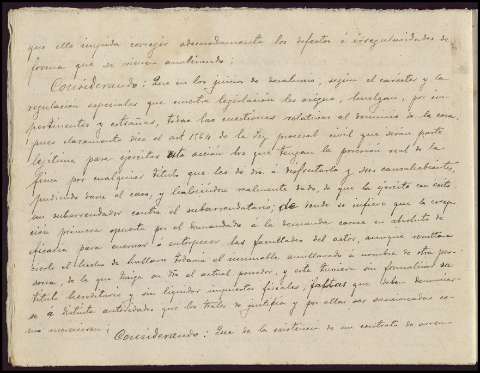 que ello impida corregir adecuadamente los defectos é irregularidades de
forma que se vienen analizando;
Considerando: Que en los juicios de desahucio, según el carácter y la
regulación especiales que nuestra legislación les asigna, huelgan, por im-
pertinentes y extrañas, todas las cuestiones relativas al dominio de la cosa,
pues claramente dice el art 1564 de la ley procesal civil que serán parte
legítima para ejercitar esta acción los que tengan la posesión real de la
finca por cualquier título que les dé dro. á disfrutarla y sus causahabientes,
pudiendo darse el caso, y habiéndose realmente dado, de que la ejercite con éxito
un subarrendador contra el subarrendatario; de donde se infiere que la excep-
ción primera opuesta por el demandado á la demanda carece en absoluto de
eficacia para enervar ó entorpecer las facultades del actor, aunque resultara
cierto el hecho de hallarse todavía el inmueble amillarado á nombre de otra per-
sona, de la que traiga su dro. el actual poseedor, y este tuviera sin formalizar su
título hereditario y sin liquidar impuestos fiscales, faltas que deben denunciar-
se á distinta autoridad, que los trate de justificar y por ellas ser sancionadas co-
mo merecieren;
Considerando: Que de la existencia de un contrato de arren-